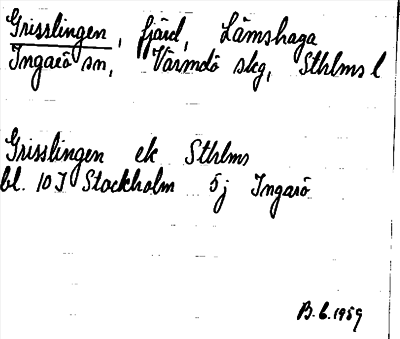 Grisslingen, fjärd, Lämshaga
Ingarö sn, Värmdö skg, Sthlms l
Grisslingen ek Sthlms
bl. 10 I Stockholm 5j Ingarö
B.G. 1959